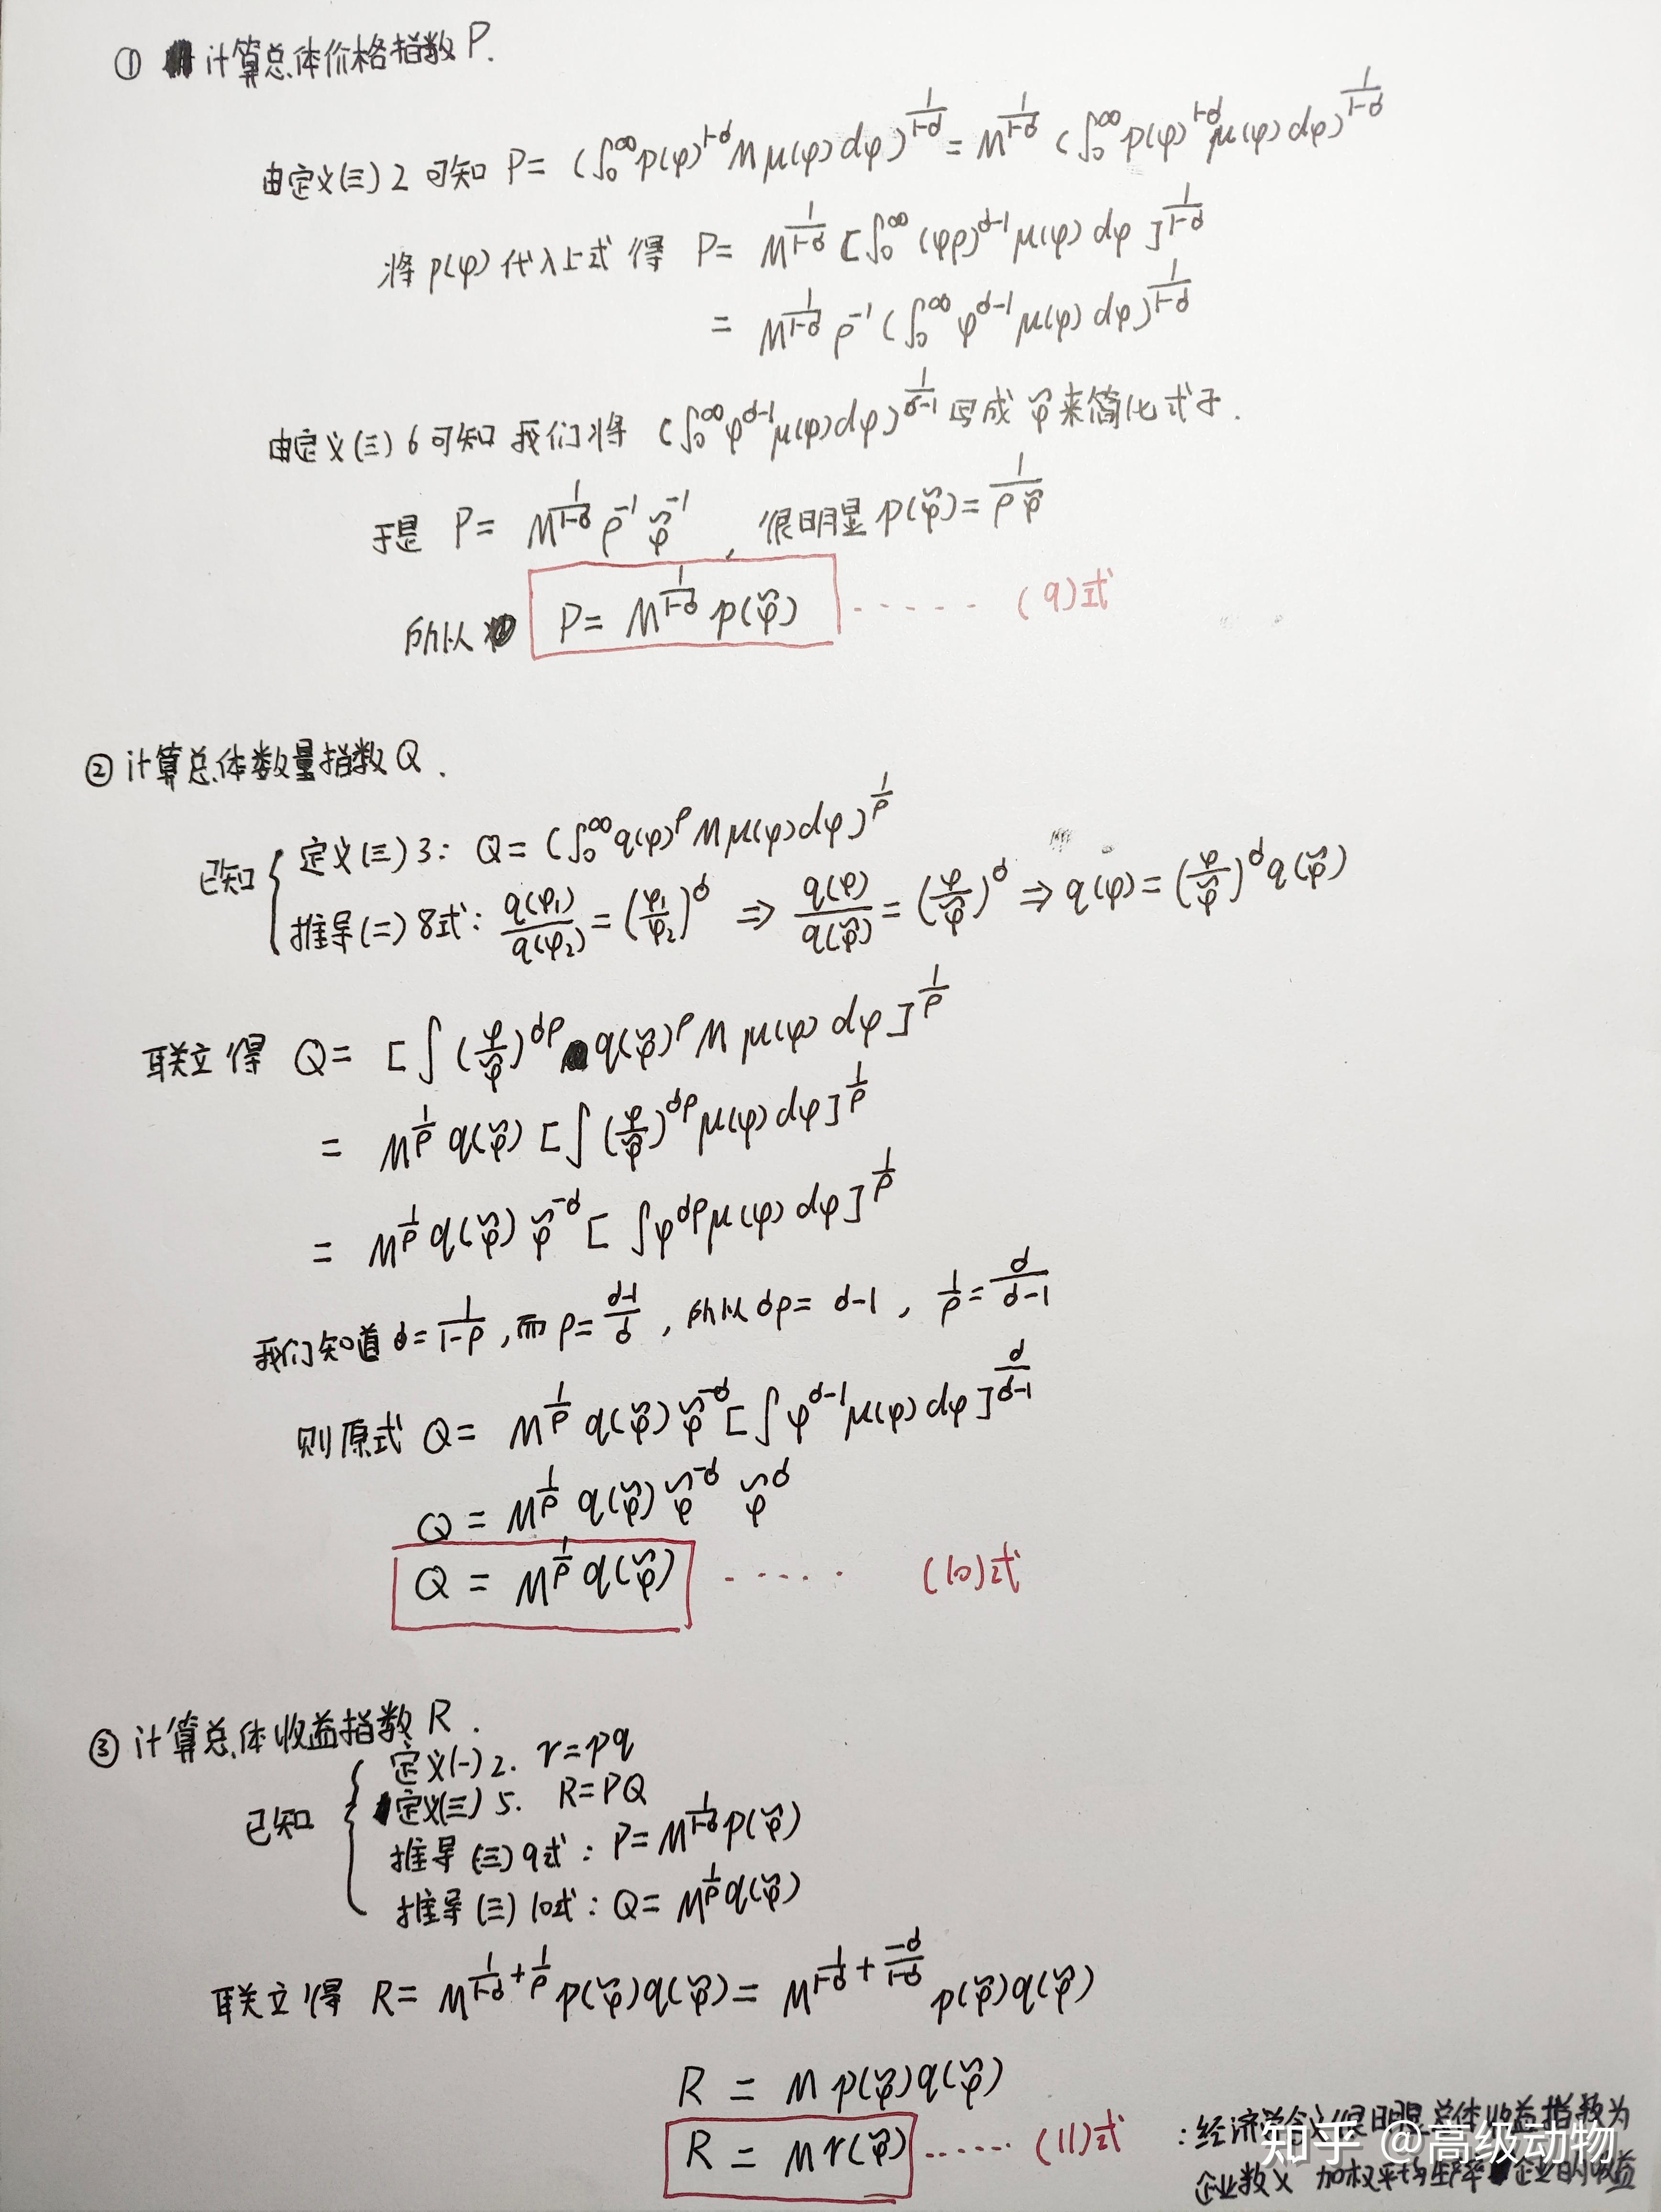 ① 计算总体价格指数P.
由定义(三)2可知 P=(∫₀^∞ p(φ)^(1-σ) M μ(φ) dφ)^(1/(1-σ)) = M^(1/(1-σ)) (∫₀^∞ p(φ)^(1-σ) μ(φ) dφ)^(1/(1-σ))
将p(φ)代入上式得 P= M^(1/(1-σ)) [∫₀^∞ (φρ)^(σ-1) μ(φ) dφ]^(1/(1-σ))
= M^(1/(1-σ)) ρ^(-1) (∫₀^∞ φ^(σ-1) μ(φ) dφ)^(1/(1-σ))
由定义(三)6可知 我们将 (∫₀^∞ φ^(σ-1) μ(φ) dφ)^(1/(σ-1)) 写成 φ̃ 来简化式子.
于是 P= M^(1/(1-σ)) ρ^(-1) φ̃^(-1) , 很明显 p(φ̃)= 1/(ρφ̃)
所以 P= M^(1/(1-σ)) p(φ̃) ...... (9)式
② 计算总体数量指数Q.
已知 { 定义(三)3: Q=(∫₀^∞ q(φ)^ρ M μ(φ) dφ)^(1/ρ)
推导(二)8式: q(φ₁)/q(φ₂) = (φ₁/φ₂)^σ ⇒ q(φ)/q(φ̃) = (φ/φ̃)^σ ⇒ q(φ)= (φ/φ̃)^σ q(φ̃)
联立得 Q= [∫(φ/φ̃)^(σρ) q(φ̃)^ρ M μ(φ) dφ]^(1/ρ)
= M^(1/ρ) q(φ̃) [∫(φ/φ̃)^(σρ) μ(φ) dφ]^(1/ρ)
= M^(1/ρ) q(φ̃) φ̃^(-σ) [∫φ^(σρ) μ(φ) dφ]^(1/ρ)
我们知道 σ= 1/(1-ρ) , 而 ρ= (σ-1)/σ , 所以 σρ= σ-1 , 1/ρ = σ/(σ-1)
则原式 Q= M^(1/ρ) q(φ̃) φ̃^(-σ) [∫φ^(σ-1) μ(φ) dφ]^(σ/(σ-1))
Q = M^(1/ρ) q(φ̃) φ̃^(-σ) φ̃^σ
Q = M^(1/ρ) q(φ̃) ...... (10)式
③ 计算总体收益指数R.
已知 { 定义(一)2. r=pq
定义(三)5. R=PQ
推导(三)9式: P= M^(1/(1-σ)) p(φ̃)
推导(三)10式: Q= M^(1/ρ) q(φ̃)
联立得 R= M^(1/(1-σ) + 1/ρ) p(φ̃)q(φ̃) = M^(1/(1-σ) + (-σ)/(1-σ)) p(φ̃)q(φ̃)
R = M p(φ̃)q(φ̃)
R = M r(φ̃) ...... (11)式 : 经济学含义很明显总体收益指数为
企业数 × 加权平均生产率企业的收益
知乎 @高级动物